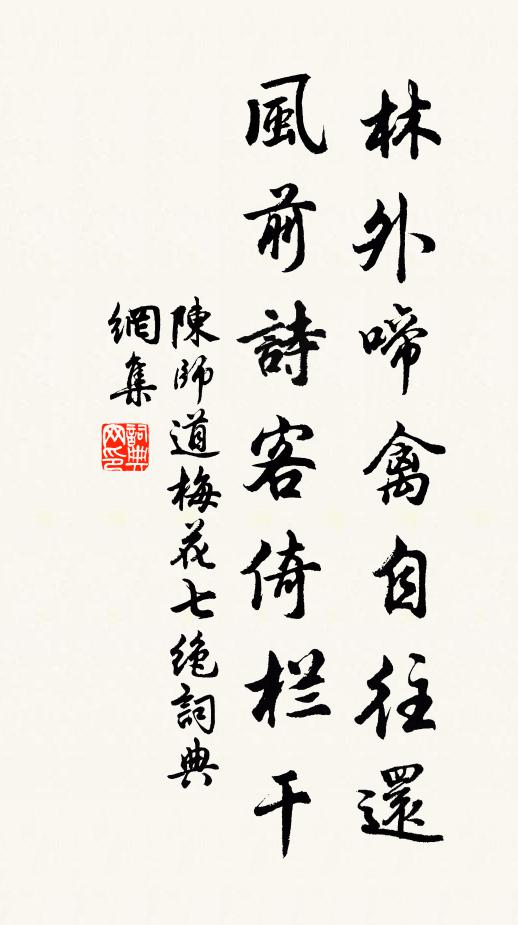 林外啼禽自往還
風前詩客倚栏干
陳師道梅花七絶詞典
網集
詞典
网印